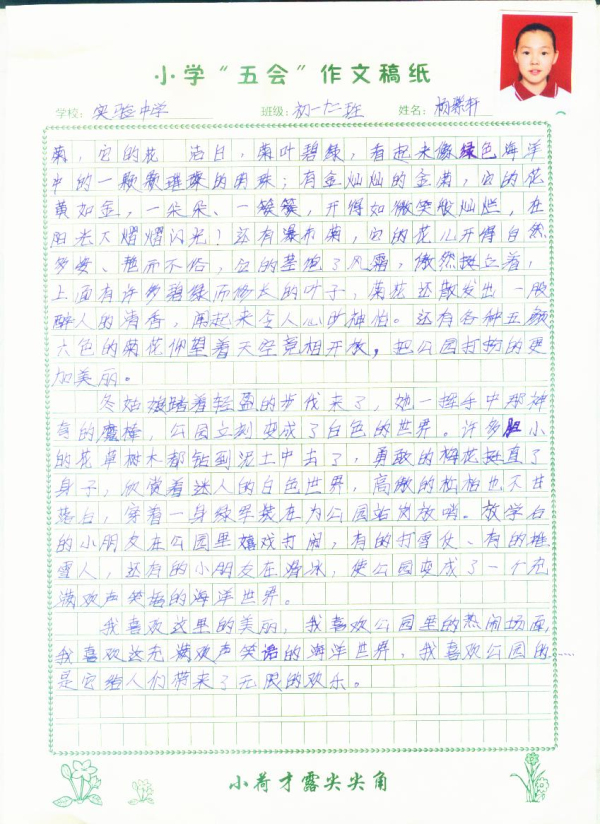 小学“五会”作文稿纸
学校：实验中学 班级：初一十二班 姓名：杨
菊，它的花 洁白，菊叶碧绿，看起来像绿色海洋
中的一颗颗璀璨的明珠；有金灿灿的金菊，它的花
黄如金，一朵朵、一簇簇，开得如微笑般灿烂，在
阳光下熠熠闪光！还有瀑布菊，它的花儿开得自然
多姿、艳而不俗，它的茎饱了风霜，傲然挺立着，
上面有许多碧绿而修长的叶子，菊花还散发出一股
醉人的清香，闻起来令人心旷神怡。还有各种五颜
六色的菊花仰望着天空竞相开放，把公园打扮的更
加美丽。
冬姑娘踏着轻盈的步伐来了，她一挥手中那神
奇的魔棒，公园立刻变成了白色的世界。许多胆小
的花草树木都钻到泥土中去了，勇敢的梅花挺直了
身子，欣赏着迷人的白色世界，高傲的松柏也不甘
落白，穿着一身绿军装在为公园站岗放哨。放学后
的小朋友在公园里嬉戏打闹，有的打雪仗、有的堆
雪人，还有的小朋友在滑冰，使公园变成了一个充
满欢声笑语的海洋世界。
我喜欢这里的美丽，我喜欢公园里的热闹场面，
我喜欢这充满欢声笑语的海洋世界，我喜欢公园的……
是它给人们带来了无限的欢乐。
小荷才露尖尖角